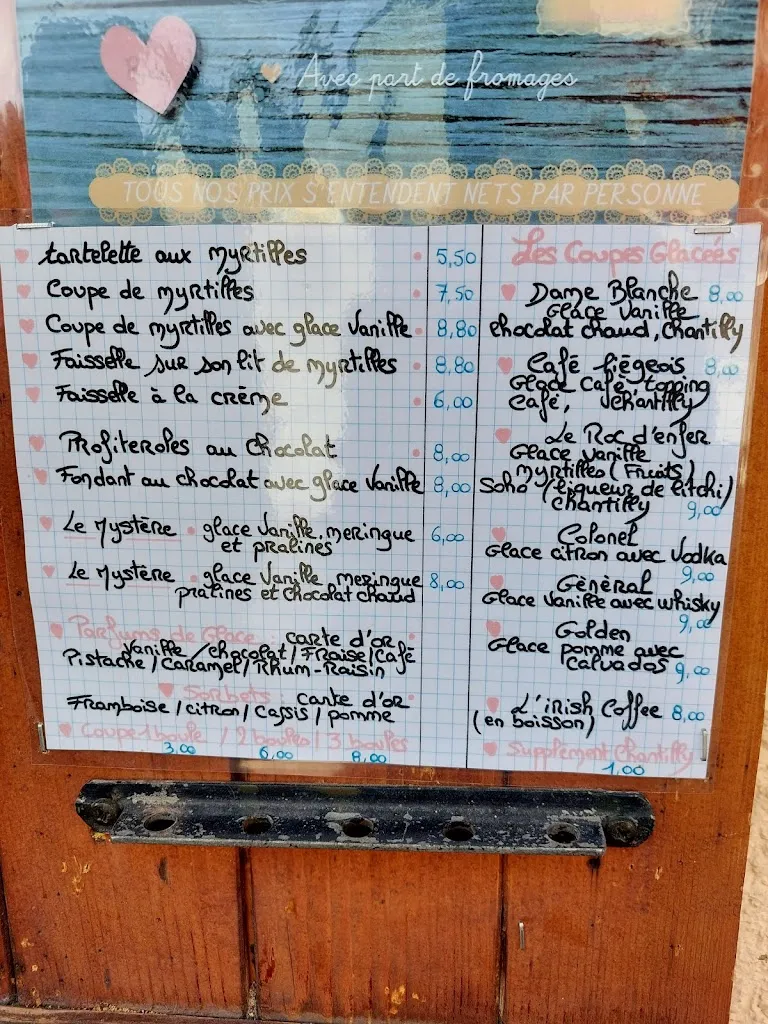 Avec part de fromages
TOUS NOS PRIX S'ENTENDENT NETS PAR PERSONNE
tartelette aux myrtilles 5,50
Coupe de myrtilles 7,50
Coupe de myrtilles avec glace Vanille 8,80
Faisselle sur son lit de myrtilles 8,80
Faisselle à la crème 6,00
Profiteroles au chocolat 8,00
Fondant au chocolat avec glace Vanille 8,00
Le Mystère glace Vanille, meringue 6,00
et pralines
Le Mystère glace Vanille meringue 8,00
pralines et chocolat chaud
Parfums de Glace : carte d'or
Vanille / chocolat / Fraise / Café
Pistache / Caramel / Rhum-Raisin
Sorbets : carte d'or
Framboise / citron / Cassis / pomme
Coupe 1 boule / 2 boules / 3 boules
3,00 6,00 8,00
Les Coupes Glacées
Dame Blanche 8,00
Glace Vanille
chocolat chaud, chantilly
Café liégeois 8,00
Glace Café topping
Café, chantilly
Le Roc d'enfer
Glace Vanille
myrtilles (Fruits)
Soho (liqueur de litchi)
chantilly 9,00
Colonel
Glace citron avec Vodka
9,00
Général
Glace Vanille avec whisky
9,00
Golden
Glace pomme avec
Calvados 9,00
L'irish Coffee 8,00
(en boisson)
Supplément chantilly
1,00